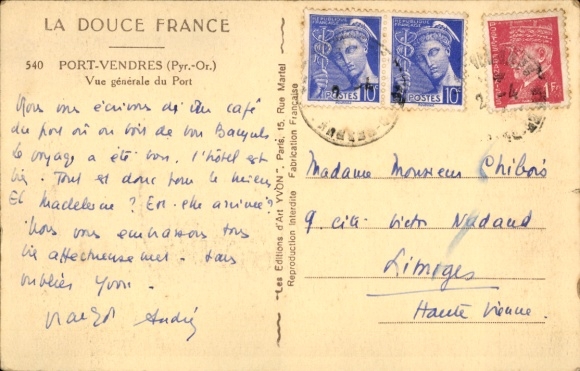 LA DOUCE FRANCE
540 PORT-VENDRES (Pyr.-Or.)
Vue générale du Port
Nous vous écrivons du café
du port où on voit de
le voyage a été bon. l'hôtel est
bien. Tout est donc pour le mieux
Et Madeleine ? Est-elle arrivée ?
Nous vous embrassons tous
bien affectueusement. sans
oublier Yvon.
Margot André
"Les Editions d'Art YVON". Paris, 15, Rue Martel
Reproduction Interdite Fabrication Française
POSTES 10
POSTES 10
1Fr.
Madame Monsieur Chibois
9 cité Victor Nadaud
Limoges
Haute Vienne.